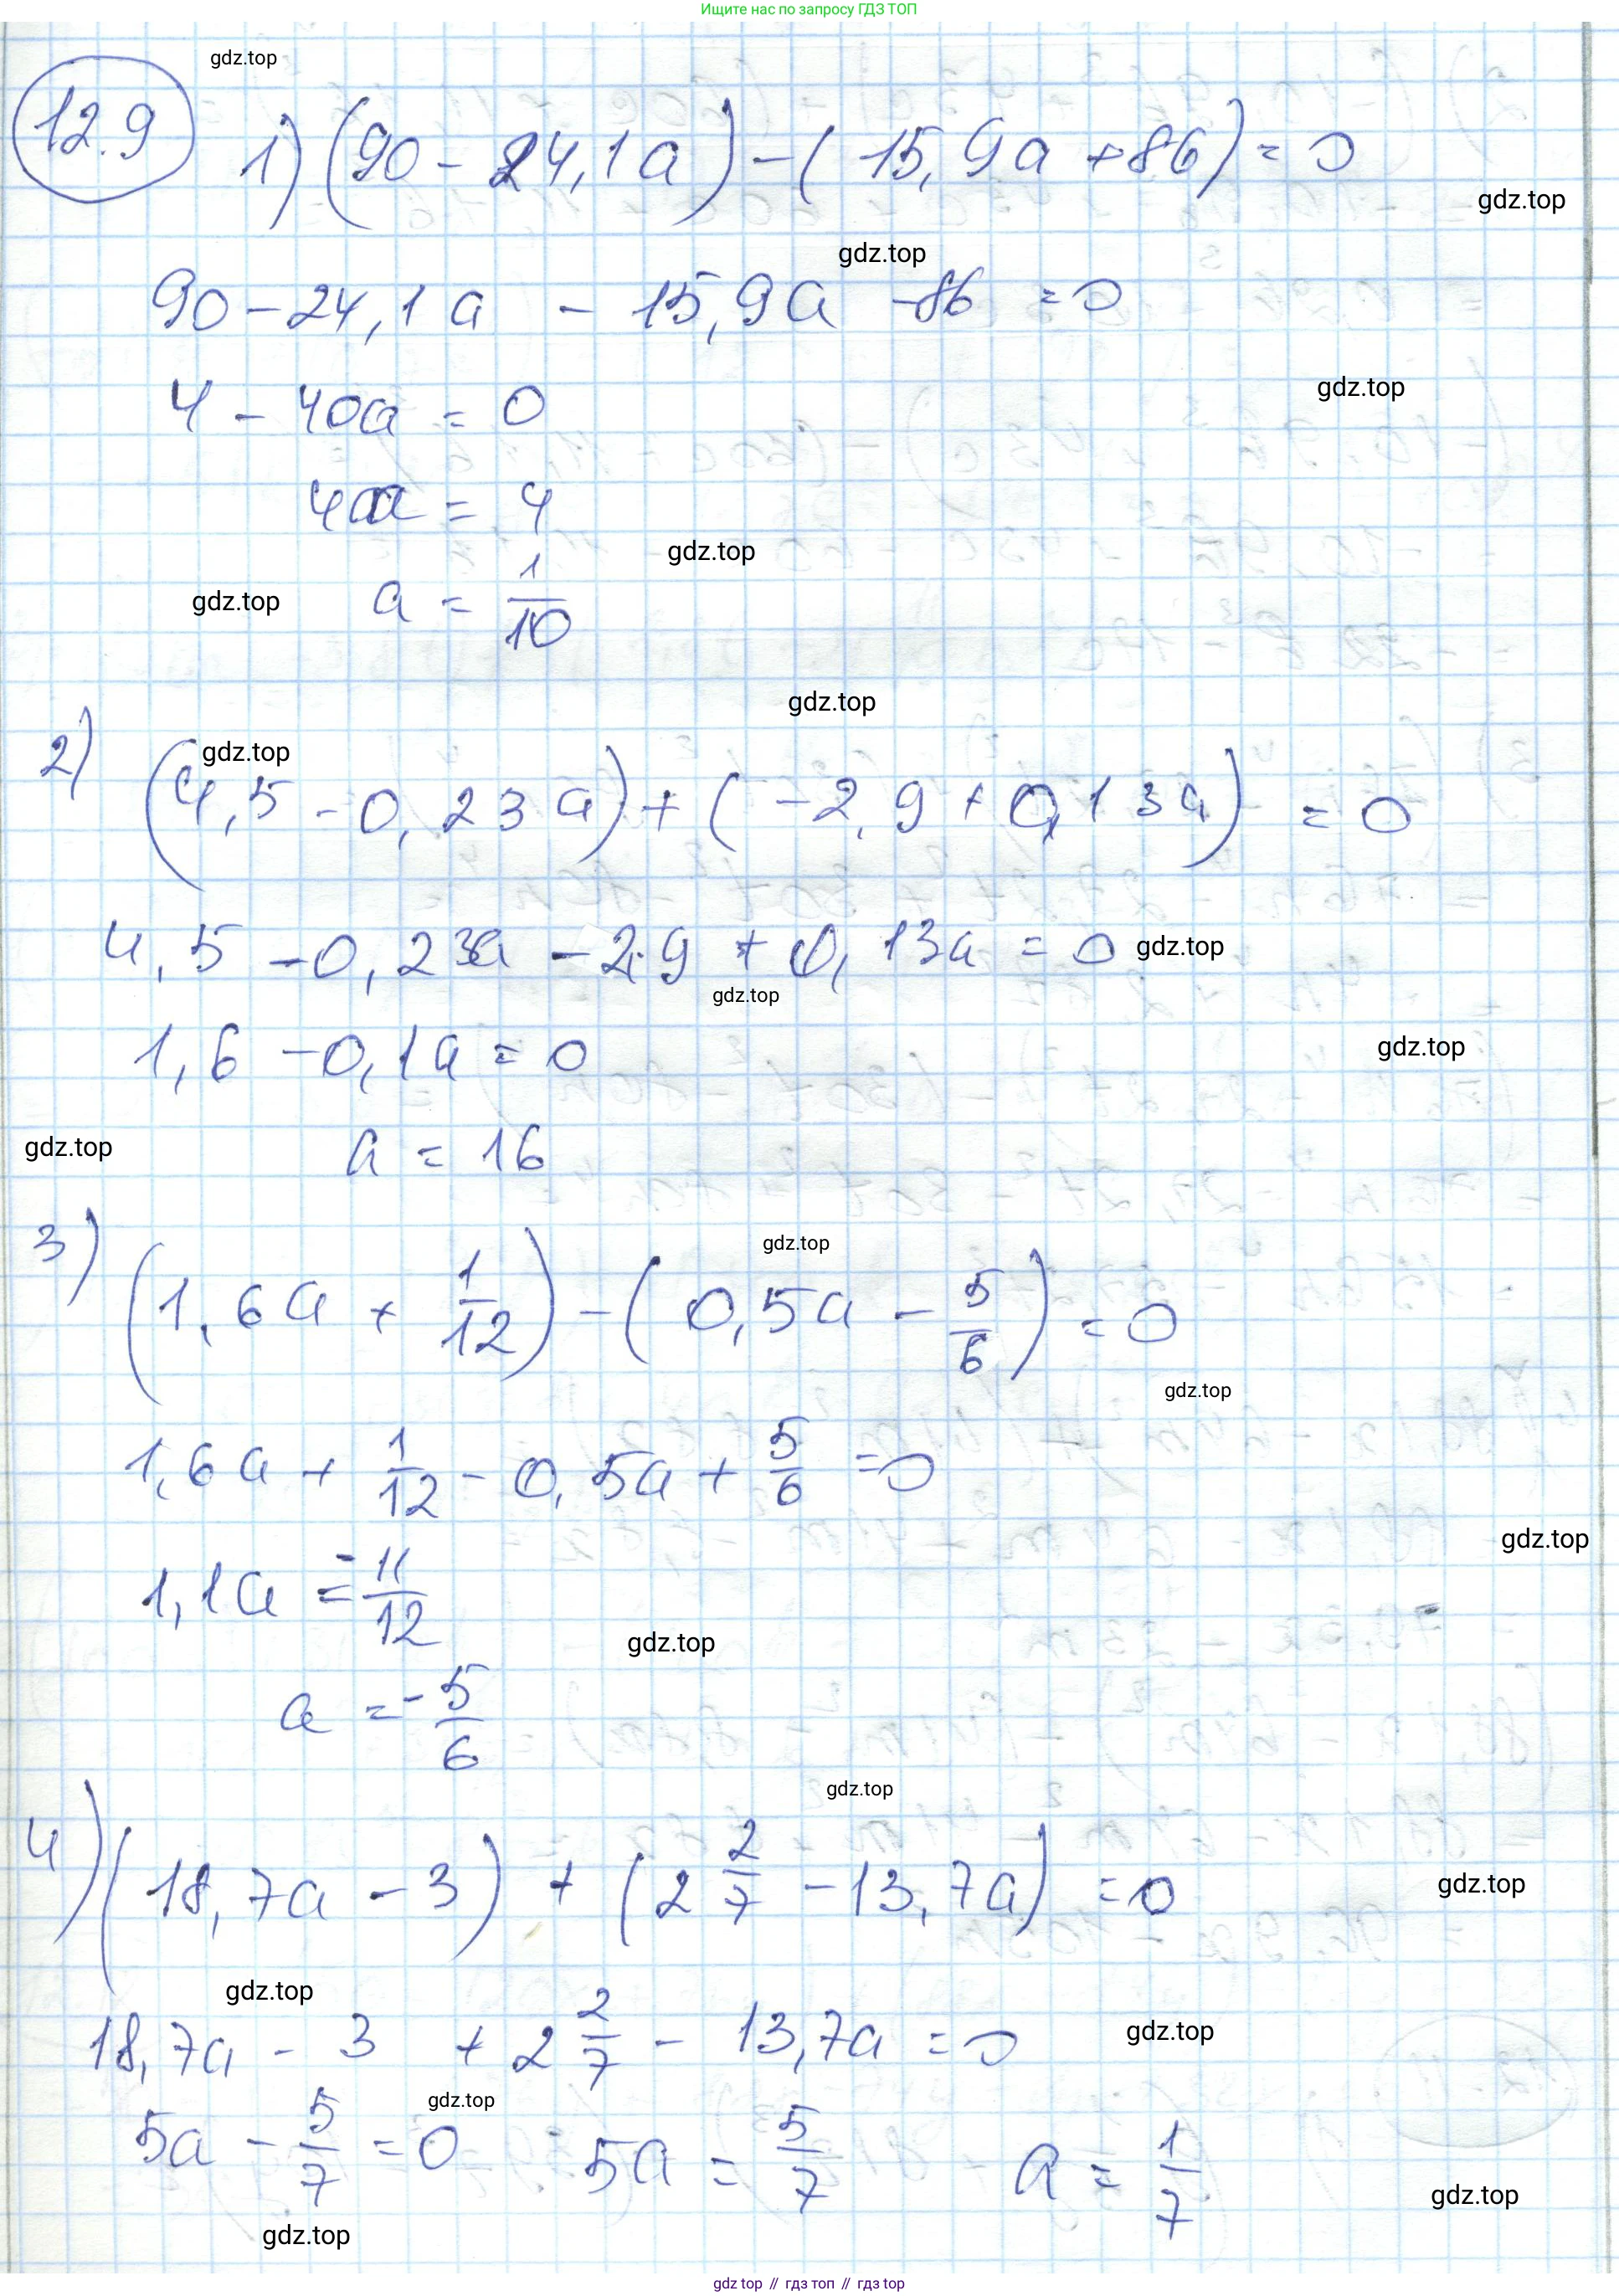 Ищите нас по запросу ГДЗ ТОП
gdz.top
12.9
1) (90 - 24,1a) - (15,9a + 86) = 0
gdz.top
gdz.top
90 - 24,1a - 15,9a - 86 = 0
gdz.top
4 - 40a = 0
40a = 4
gdz.top
gdz.top
a = 1/10
gdz.top
2) (4,5 - 0,23a) + (-2,9 + 0,13a) = 0
gdz.top
4,5 - 0,23a - 2,9 + 0,13a = 0
gdz.top
gdz.top
1,6 - 0,1a = 0
gdz.top
gdz.top
a = 16
3) (1,6a + 1/12) - (0,5a - 5/6) = 0
gdz.top
gdz.top
1,6a + 1/12 - 0,5a + 5/6 = 0
gdz.top
1,1a = -11/12
gdz.top
a = -5/6
gdz.top
4) (18,7a - 3) + (2 2/7 - 13,7a) = 0
gdz.top
gdz.top
18,7a - 3 + 2 2/7 - 13,7a = 0
gdz.top
gdz.top
5a - 5/7 = 0 5a = 5/7 a = 1/7
gdz.top
gdz.top
gdz top // гдз топ // gdz top